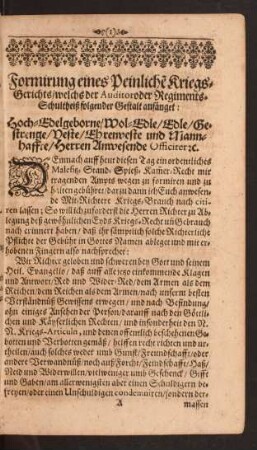 (1)
Formirung eines Peinlichē Kriegs-
Gerichts/welchs der Auditor oder Regiments-
Schultheiß folgender Gestalt anfänget:
Hoch-Edelgeborne/Wol-Edle/Edle/Ge-
strenge/Veste/Ehrenveste und Mann-
haffte/Herren Anwesende Officirer ꝛc.
DEmnach auff heut diesen Tag ein ordentliches
Malefitz- Stand- Spieß- Kam̄er-Recht mir
tragenden Ampts wegen zu formiren und zu
halten gebühret/darzu dann ich Euch anwesen-
de Mit-Richtere Kriegs-Brauch nach citi-
ren lassen; So wil ich zufordest die Herren Richter zu Ab-
legung deß gewöhnlichen Eyds Kriegs-Recht uñ Gebrauch
nach erinnert haben/ daß ihr sämptlich solche Richterliche
Pflichte der Gebühr in Gottes Namen ableget und mit er-
hobenen Fingern also nachsprechet:
Wir Richter geloben und schweren bey Gott und seinem
Heil. Evangelio/ daß auff alle jetzo einkommende Klagen
und Antwort/Red und Wider-Red/dem Armen als dem
Reichen/dem Reichen als dem Armen/nach unserm besten
Verständnüß Gewissens erwegen / und nach Befindung/
ohn einiges Ansehen der Person/darauff nach den Göttli-
chen und Käyserlichen Rechten/ und insonderheit den N.
N. Kriegs-Articuln/ und denen offentlich beschehenen Ge-
botten und Verbotten gemäß / helffen recht richten und ur-
theilen/auch solches weder umb Gunst/Freundschafft/oder
ander Verwandnüß/noch auß Forcht/Feindschafft/Haß/
Neid und Widerwillen/vielweniger umb Geschenck/ Gifft
und Gaben/am allerwenigsten aber einen Schuldigern be-
freyen/oder einen Unschuldigen condemniren/sondern der-
A
massen